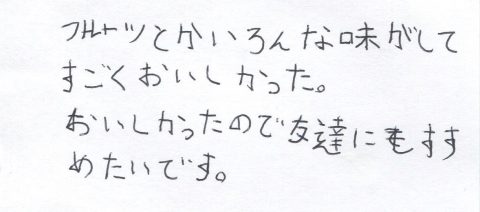 フルーツとかいろんな味がして
すごくおいしかった。
おいしかったので友達にもすす
めたいです。